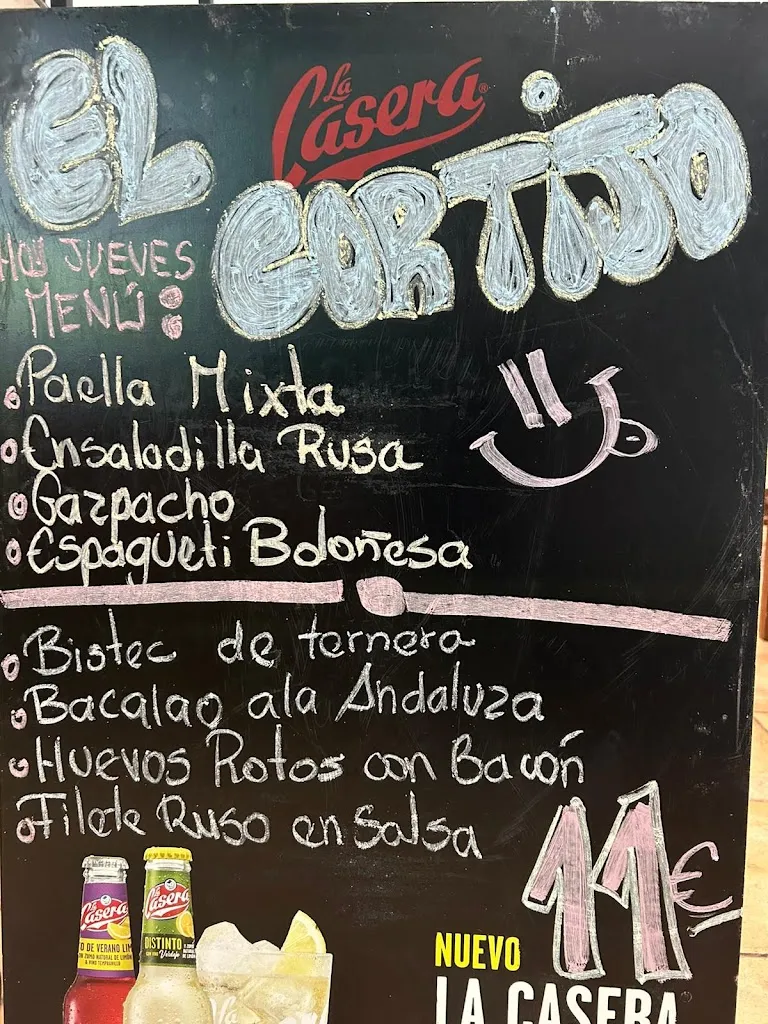 La
Casera®
EL
CORTIJO
HOY JUEVES
MENÚ:
Paella Mixta
Ensaladilla Rusa
Gazpacho
Espagueti Boloñesa
Bistec de ternera
Bacalao a la Andaluza
Huevos Rotos con Bacón
Filete Ruso en Salsa
11€
La
Casera
O DE VERANO LIM
La
Casera
DISTINTO
Verdejo
NUEVO
LA CASERA